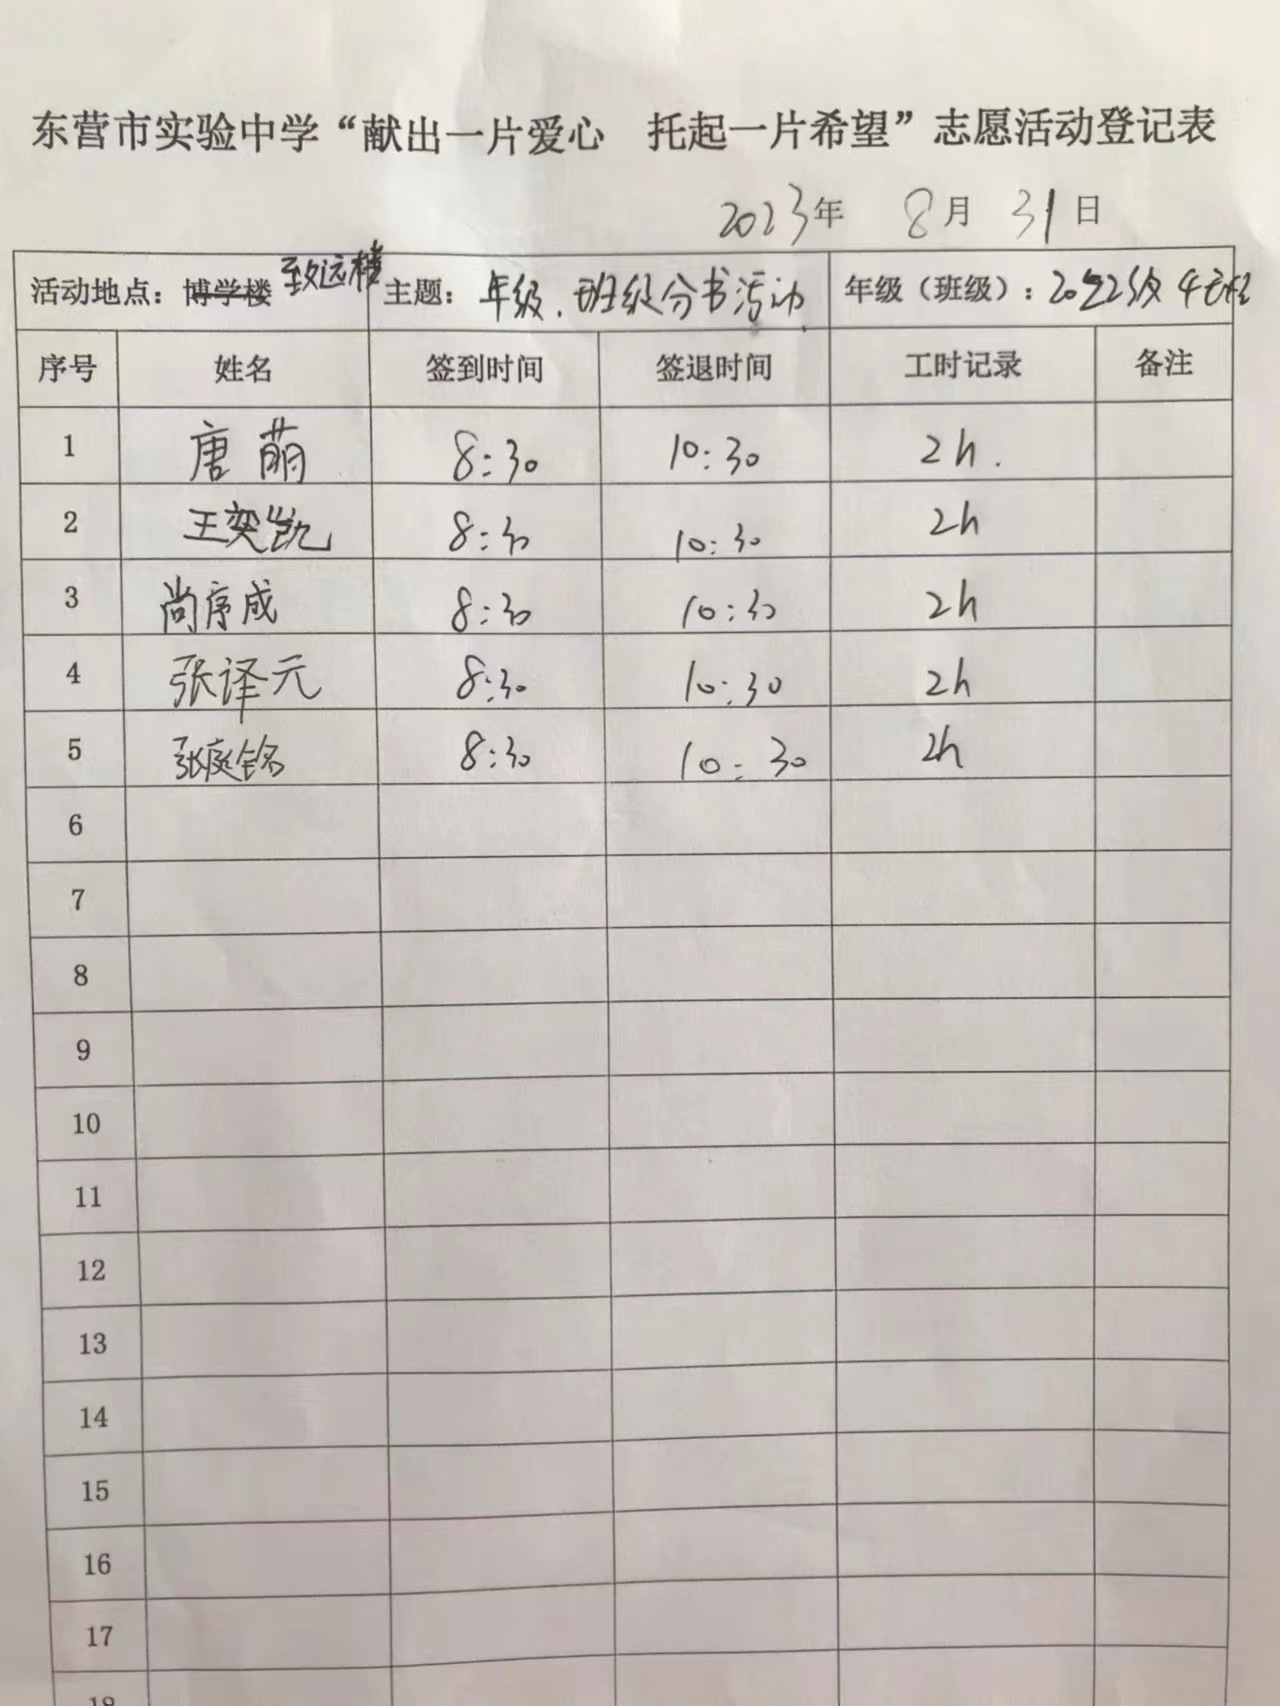 东营市实验中学“献出一片爱心 托起一片希望”志愿活动登记表
2023年 8月 31日
活动地点：博学楼 致远楼 主题：年级、班级分书活动 年级（班级）：2022级4
序号 姓名 签到时间 签退时间 工时记录 备注
1 唐萌 8:30 10:30 2h.
2 王奕凯 8:30 10:30 2h
3 尚序成 8:30 10:30 2h
4 张译元 8:30 10:30 2h
5 张庭铭 8:30 10:30 2h
6
7
8
9
10
11
12
13
14
15
16
17
18